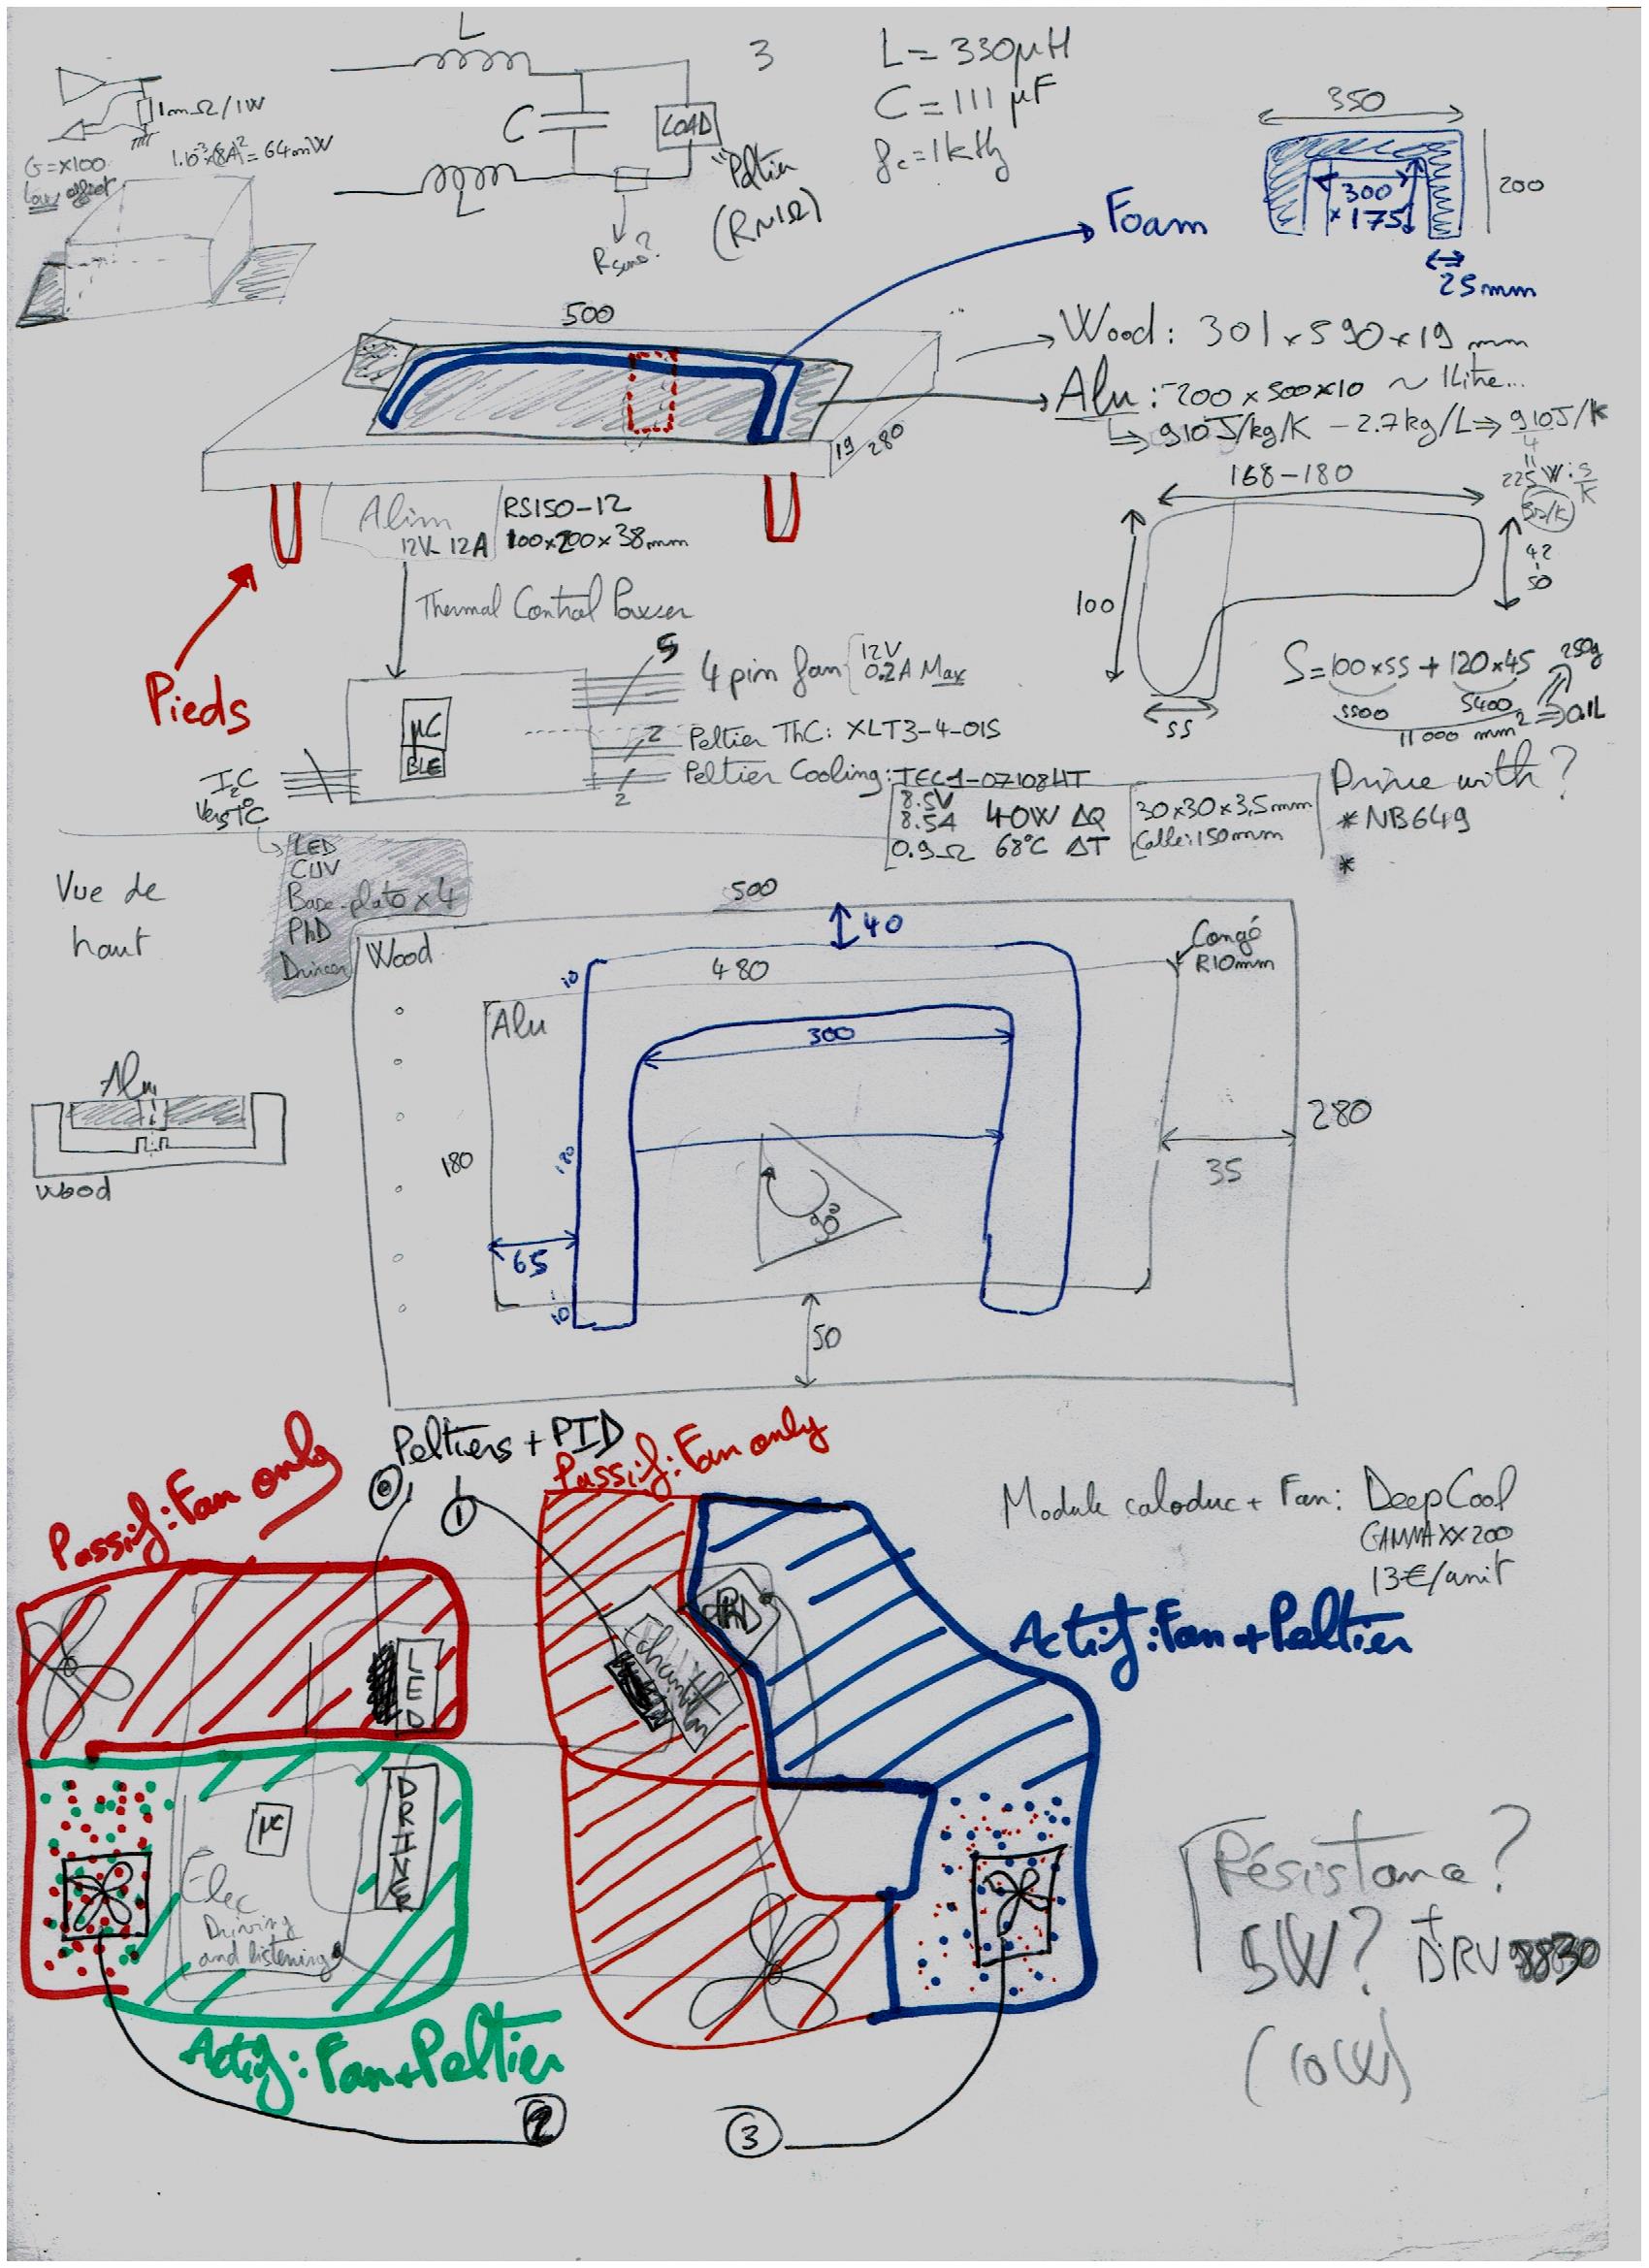 L
3
L = 330µH
C = 111 µF
fc = 1kHz
1mΩ/1W
G=x100
low offset
1.10⁻³x(8A)² = 64mW
C
LOAD
"Peltier
(R~1Ω)
L
Rsens?
350
300
x 175
200
25mm
Foam
500
Wood: 301 x 590 x 19 mm
Alu: 200 x 500 x 10 ~ 1Litre...
910J/kg/K - 2.7kg/L ⇒ 910J/K
4
225 W.s/K
19
280
Alim
12V 12A
RS150-12
100x200x38mm
Pieds
Thermal Control Power
168-180
100
42
50
55
S = 100x55 + 120x45
5500
5400
250g
11000 mm² ⇒ 0.1L
µC
BLE
5
4 pin fan
12V
0.2A Max
2
Peltier ThC: XLT3-4-01S
2
Peltier Cooling: TEC1-07108HT
8.5V
8.5A
0.9Ω
40W ΔQ
68°C ΔT
30x30x3,5mm
Calle: 150mm
Drive with?
* NB649
*
I2C
Vers T°C
LED
CUV
Base-plate x 4
PhD
Driver
Vue de
haut
Wood
500
40
480
Congé
R10mm
10
Alu
300
280
180
180
35
90°
65
10
50
Alu
Wood
Peltiers + PID
1
Passif: Fan only
Passif: Fan only
Module caloduc + Fan: DeepCool
GAMMAXX200
13€/unit
LED
PhD
Echantillon
Actif: Fan + Peltier
µC
DRIVER
Elec
Driving
and listening
Actif: Fan+Peltier
2
3
Résistance?
5W? + DRV8830
(10W)